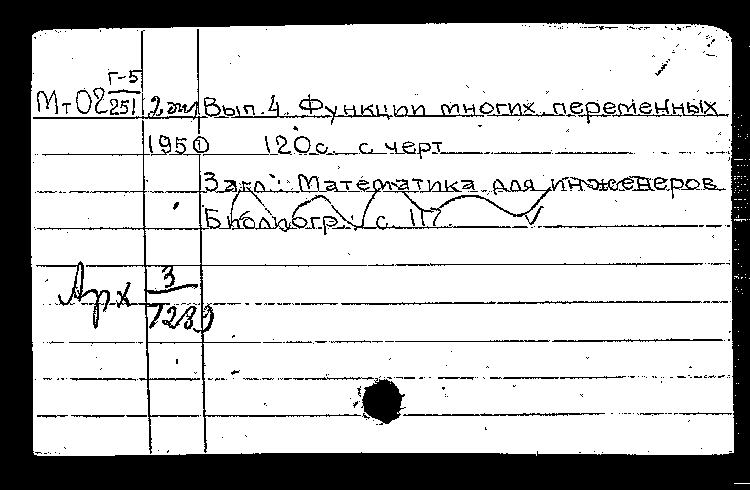 2
Г-5
Мт02 251 2 экз Вып. 4. Функции многих переменных
1950 120с. с черт
Загл.: Математика для инженеров
Библиогр.: с. 117.
Арх 3
7280